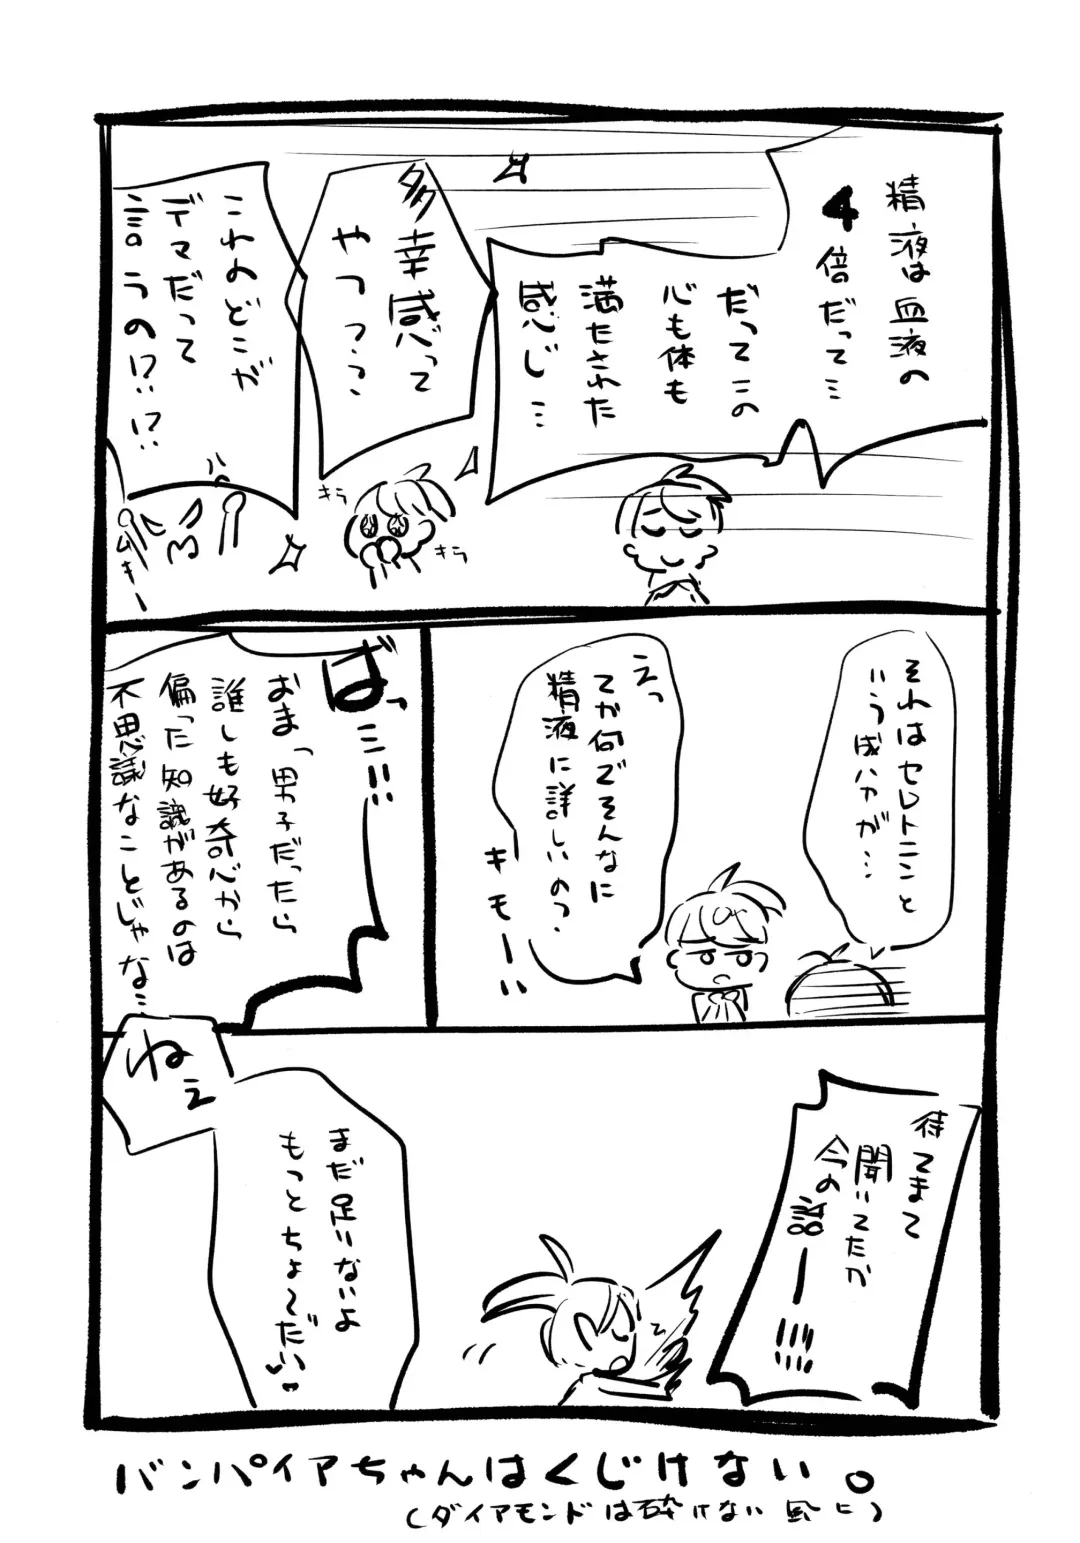 精液は血液の
4倍だって…
だってこの
心も体も
満たされた
感じ…
多幸感って
やつ??
これのどこが
デマだって
言うの!?!?
キラ
キラ
ハァ
ムキー
それはセレトニンと
いう成分が…
えっ
てか何でそんなに
精液に詳しいの?
キモーい
ばっ…!!
おま「男子だったら
誰しも好奇心から
偏った知識があるのは
不思議なことじゃな…
待てまて
聞いてたか
今の話ーー!!!
まだ足りないよ
もっとちょ〜だい
ねぇ
バンパイアちゃんはくじけない。
(ダイアモンドは砕けない風に)